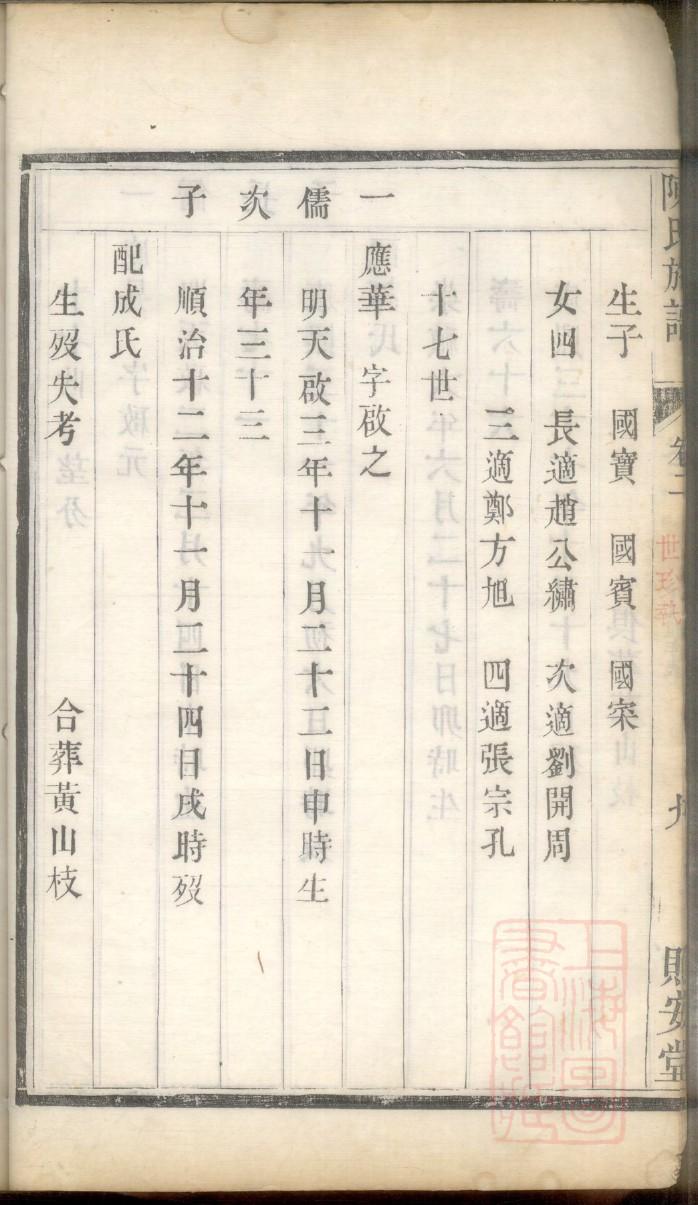 陳氏族譜 卷二 九 貽安堂
世珍執
生子 國寶 國賓 國寀
女四 長適趙公繡 次適劉開周
三適鄭方旭 四適張宗孔
十七世
一儒次子
應華 字啟之
明天啟三年十一月二十三日申時生
年三十三
順治十二年十一月二十四日戌時歿
配成氏
生歿失考 合葬黃山枝
上海圖書館藏